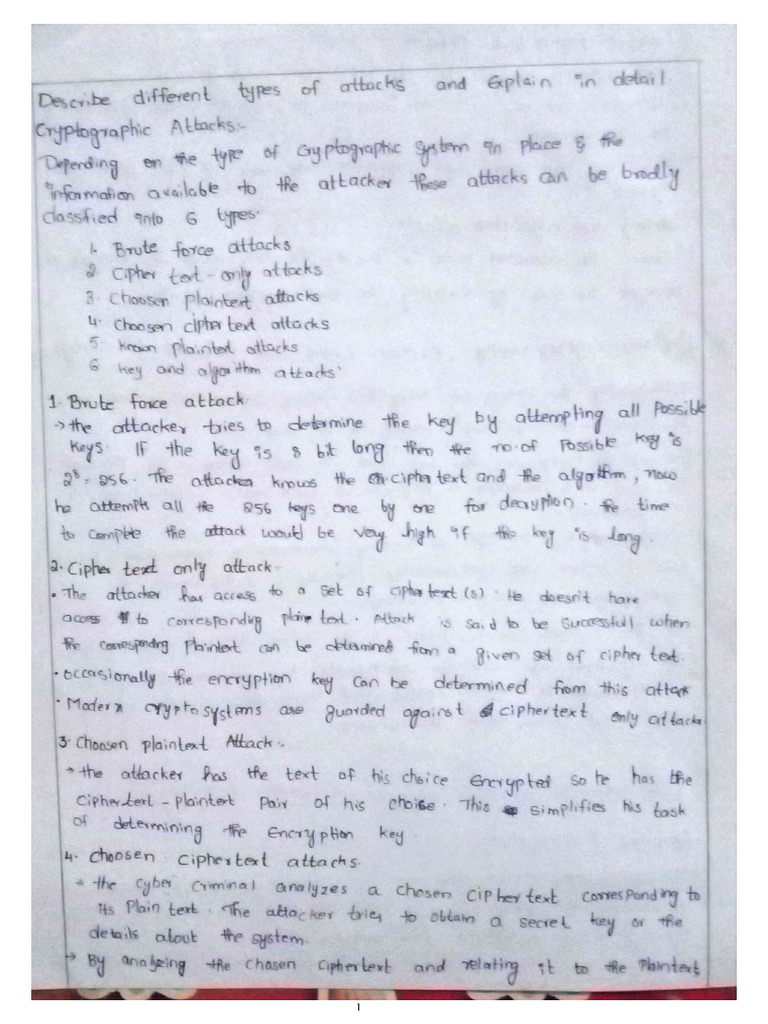 Describe different types of attacks and Explain in detail
Cryptographic Attacks:-
Depending on the type of Cryptographic System in place & the
information available to the attacker these attacks can be brodly
classfied into 6 types.
1. Brute force attacks
2. Cipher text-only attacks
3. Choosen plaintext attacks
4. Choosen ciphertext attacks
5. Known plaintext attacks
6 Key and algorithm attacks.
1. Brute force attack.
→ the attacker tries to determine the key by attempting all Possible
Keys. If the key is 8 bit long then the no.of Possible key is
2⁸ = 256. The attacker knows the ciphertext and the algorithm, now
he attempts all the 256 keys one by one for decryption. The time
to complete the attack would be very high if the key is long.
2. Cipher text only attack-
• The attacker has access to a set of ciphertext(s). He doesn't have
access to corresponding plain text. Attack is said to be successfull when
the corresponding Plaintext can be determined from a given set of cipher text.
• Occasionally the encryption key can be determined from this attack
• Modern cryptosystems are guarded against ciphertext only attack.
3. Choosen plaintext Attack:-
→ the attacker has the text of his choice Encrypted so he has the
Ciphertext-plaintext Pair of his choice. This simplifies his task
of determining the Encryption key.
4. Choosen Ciphertext attacks.
→ the Cyber Criminal analyzes a chosen ciphertext corresponding to
its Plain text. The attacker tries to obtain a secret key or the
details about the system.
→ By analyzing the chosen Ciphertext and relating it to the Plaintext
1